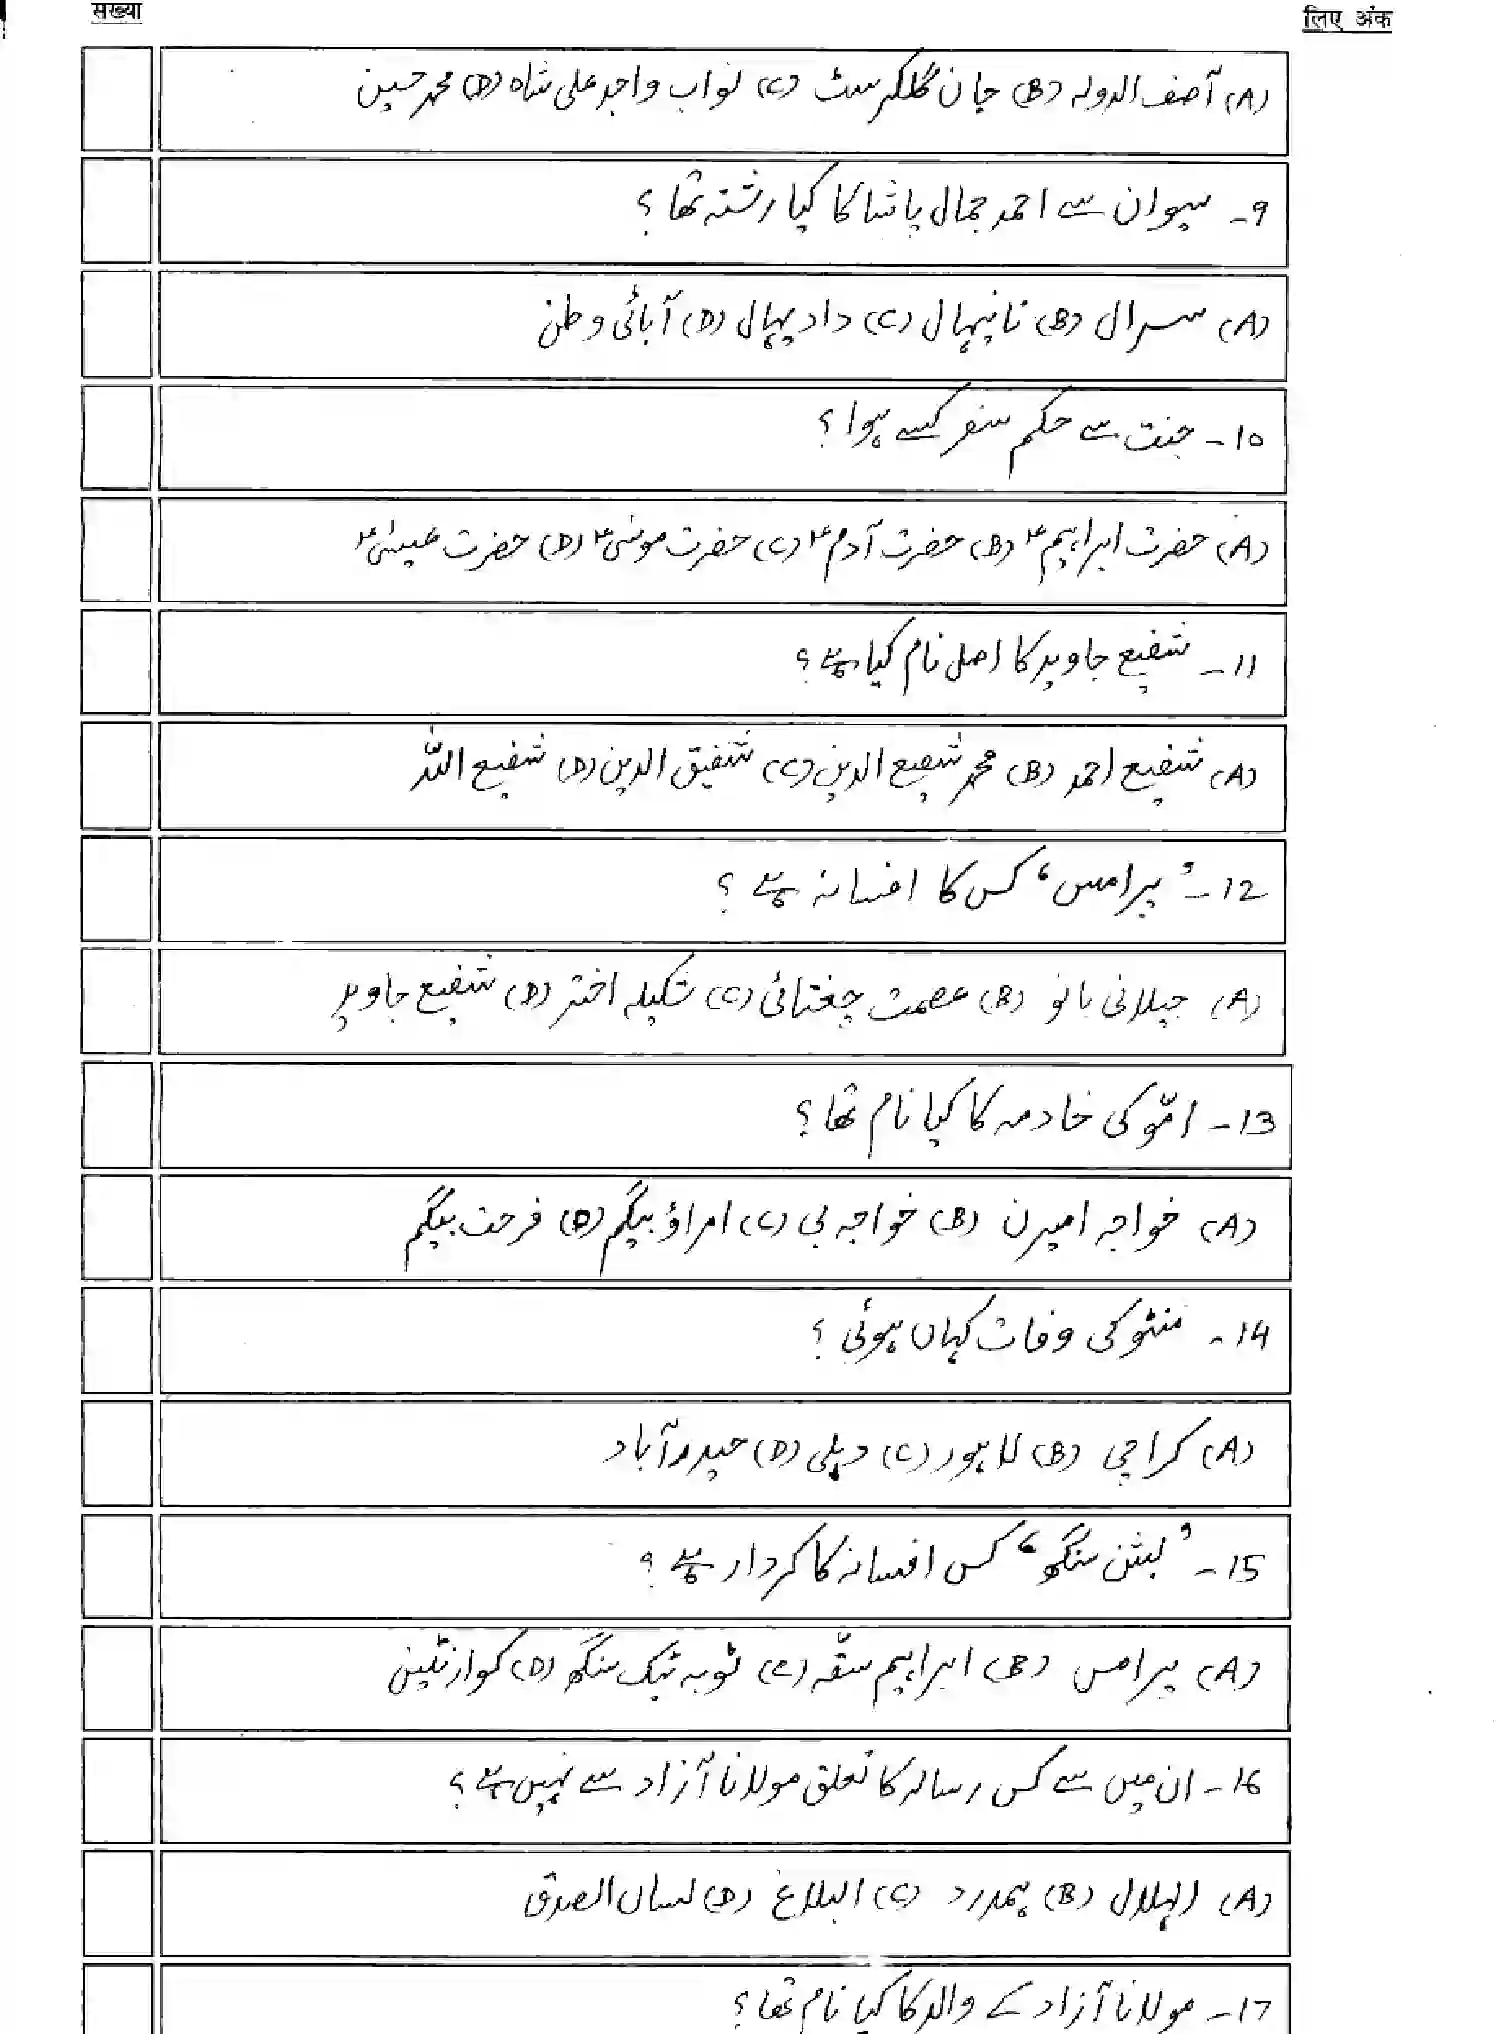 संख्या
लिए अंक
(A) آصف الدولہ (B) جان گلکرسٹ (C) نواب واجد علی شاہ (D) محمد حسین
9- سیوان سے احمد جمال پاشا کا کیا رشتہ تھا؟
(A) سسرال (B) نانیہال (C) دادیہال (D) آبائی وطن
10- جنت سے حکم سفر کسے ہوا؟
(A) حضرت ابراہیمؑ (B) حضرت آدمؑ (C) حضرت موسیٰؑ (D) حضرت عیسیٰؑ
11- شفیع جاوید کا اصل نام کیا ہے؟
(A) شفیع احمد (B) محمد شفیع الدین (C) شفیق الدین (D) شفیع اللہ
12- ’پرامس‘ کس کا افسانہ ہے؟
(A) جیلانی بانو (B) عصمت چغتائی (C) شکیلہ اختر (D) شفیع جاوید
13- امّو کی خادمہ کا کیا نام تھا؟
(A) خواجہ امیرن (B) خواجہ بی (C) امراؤ بیگم (D) فرحت بیگم
14- منٹو کی وفات کہاں ہوئی؟
(A) کراچی (B) لاہور (C) دہلی (D) حیدرآباد
15- ’بشن سنگھ‘ کس افسانہ کا کردار ہے؟
(A) پرامس (B) ابراہیم سقّہ (C) ٹوبہ ٹیک سنگھ (D) کوارنٹین
16- ان میں سے کس رسالہ کا تعلق مولانا آزاد سے نہیں ہے؟
(A) الہلال (B) ہمدرد (C) البلاغ (D) لسان الصدق
17- مولانا آزاد کے والد کا کیا نام تھا؟